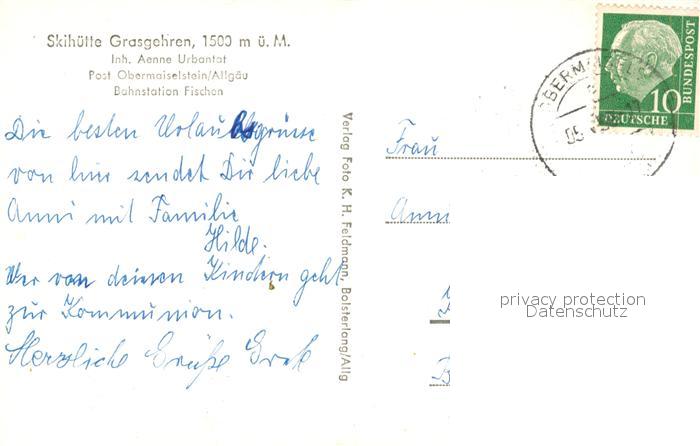 Skihütte Grasgehren, 1500 m ü. M.
Inh. Aenne Urbantat
Post Obermaiselstein/Allgäu
Bahnstation Fischen
Die besten Urlaubsgrüsse
von hier sendet Dir liebe
Anni mit Familie
Hilde.
Wer von deinen Kindern geht
zur Kommunion.
Herzliche Grüße
Verlag Foto K. H. Feldmann, Bolsterlang/Allg
Frau
10
DEUTSCHE
BUNDESPOST
privacy protection
Datenschutz